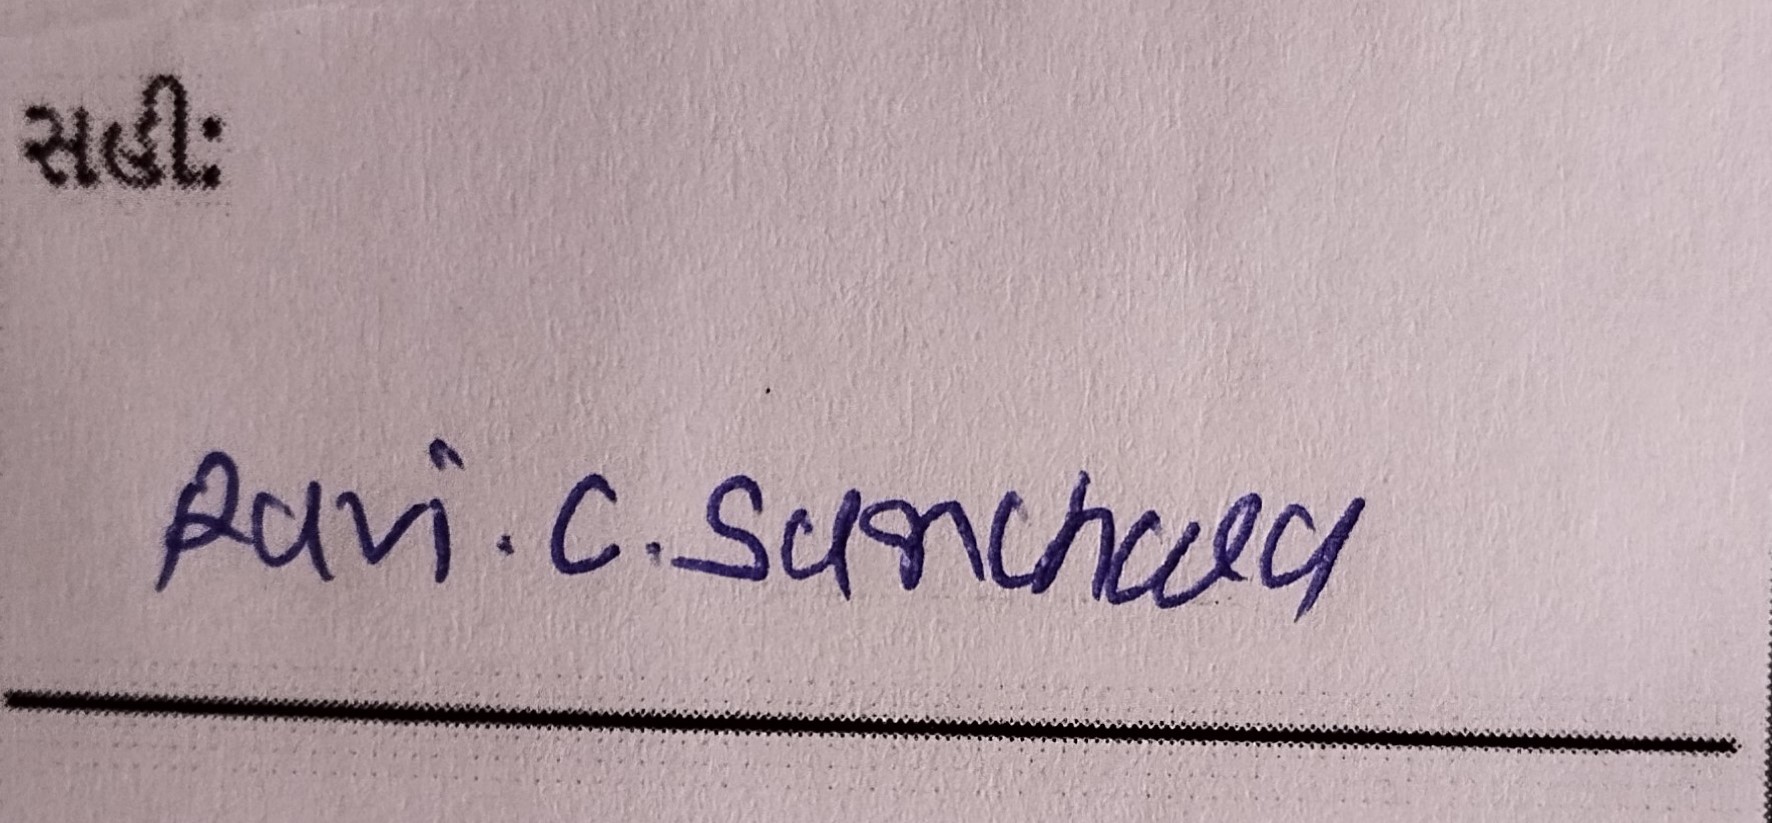 સહી:
Ravi. C. Sanchala